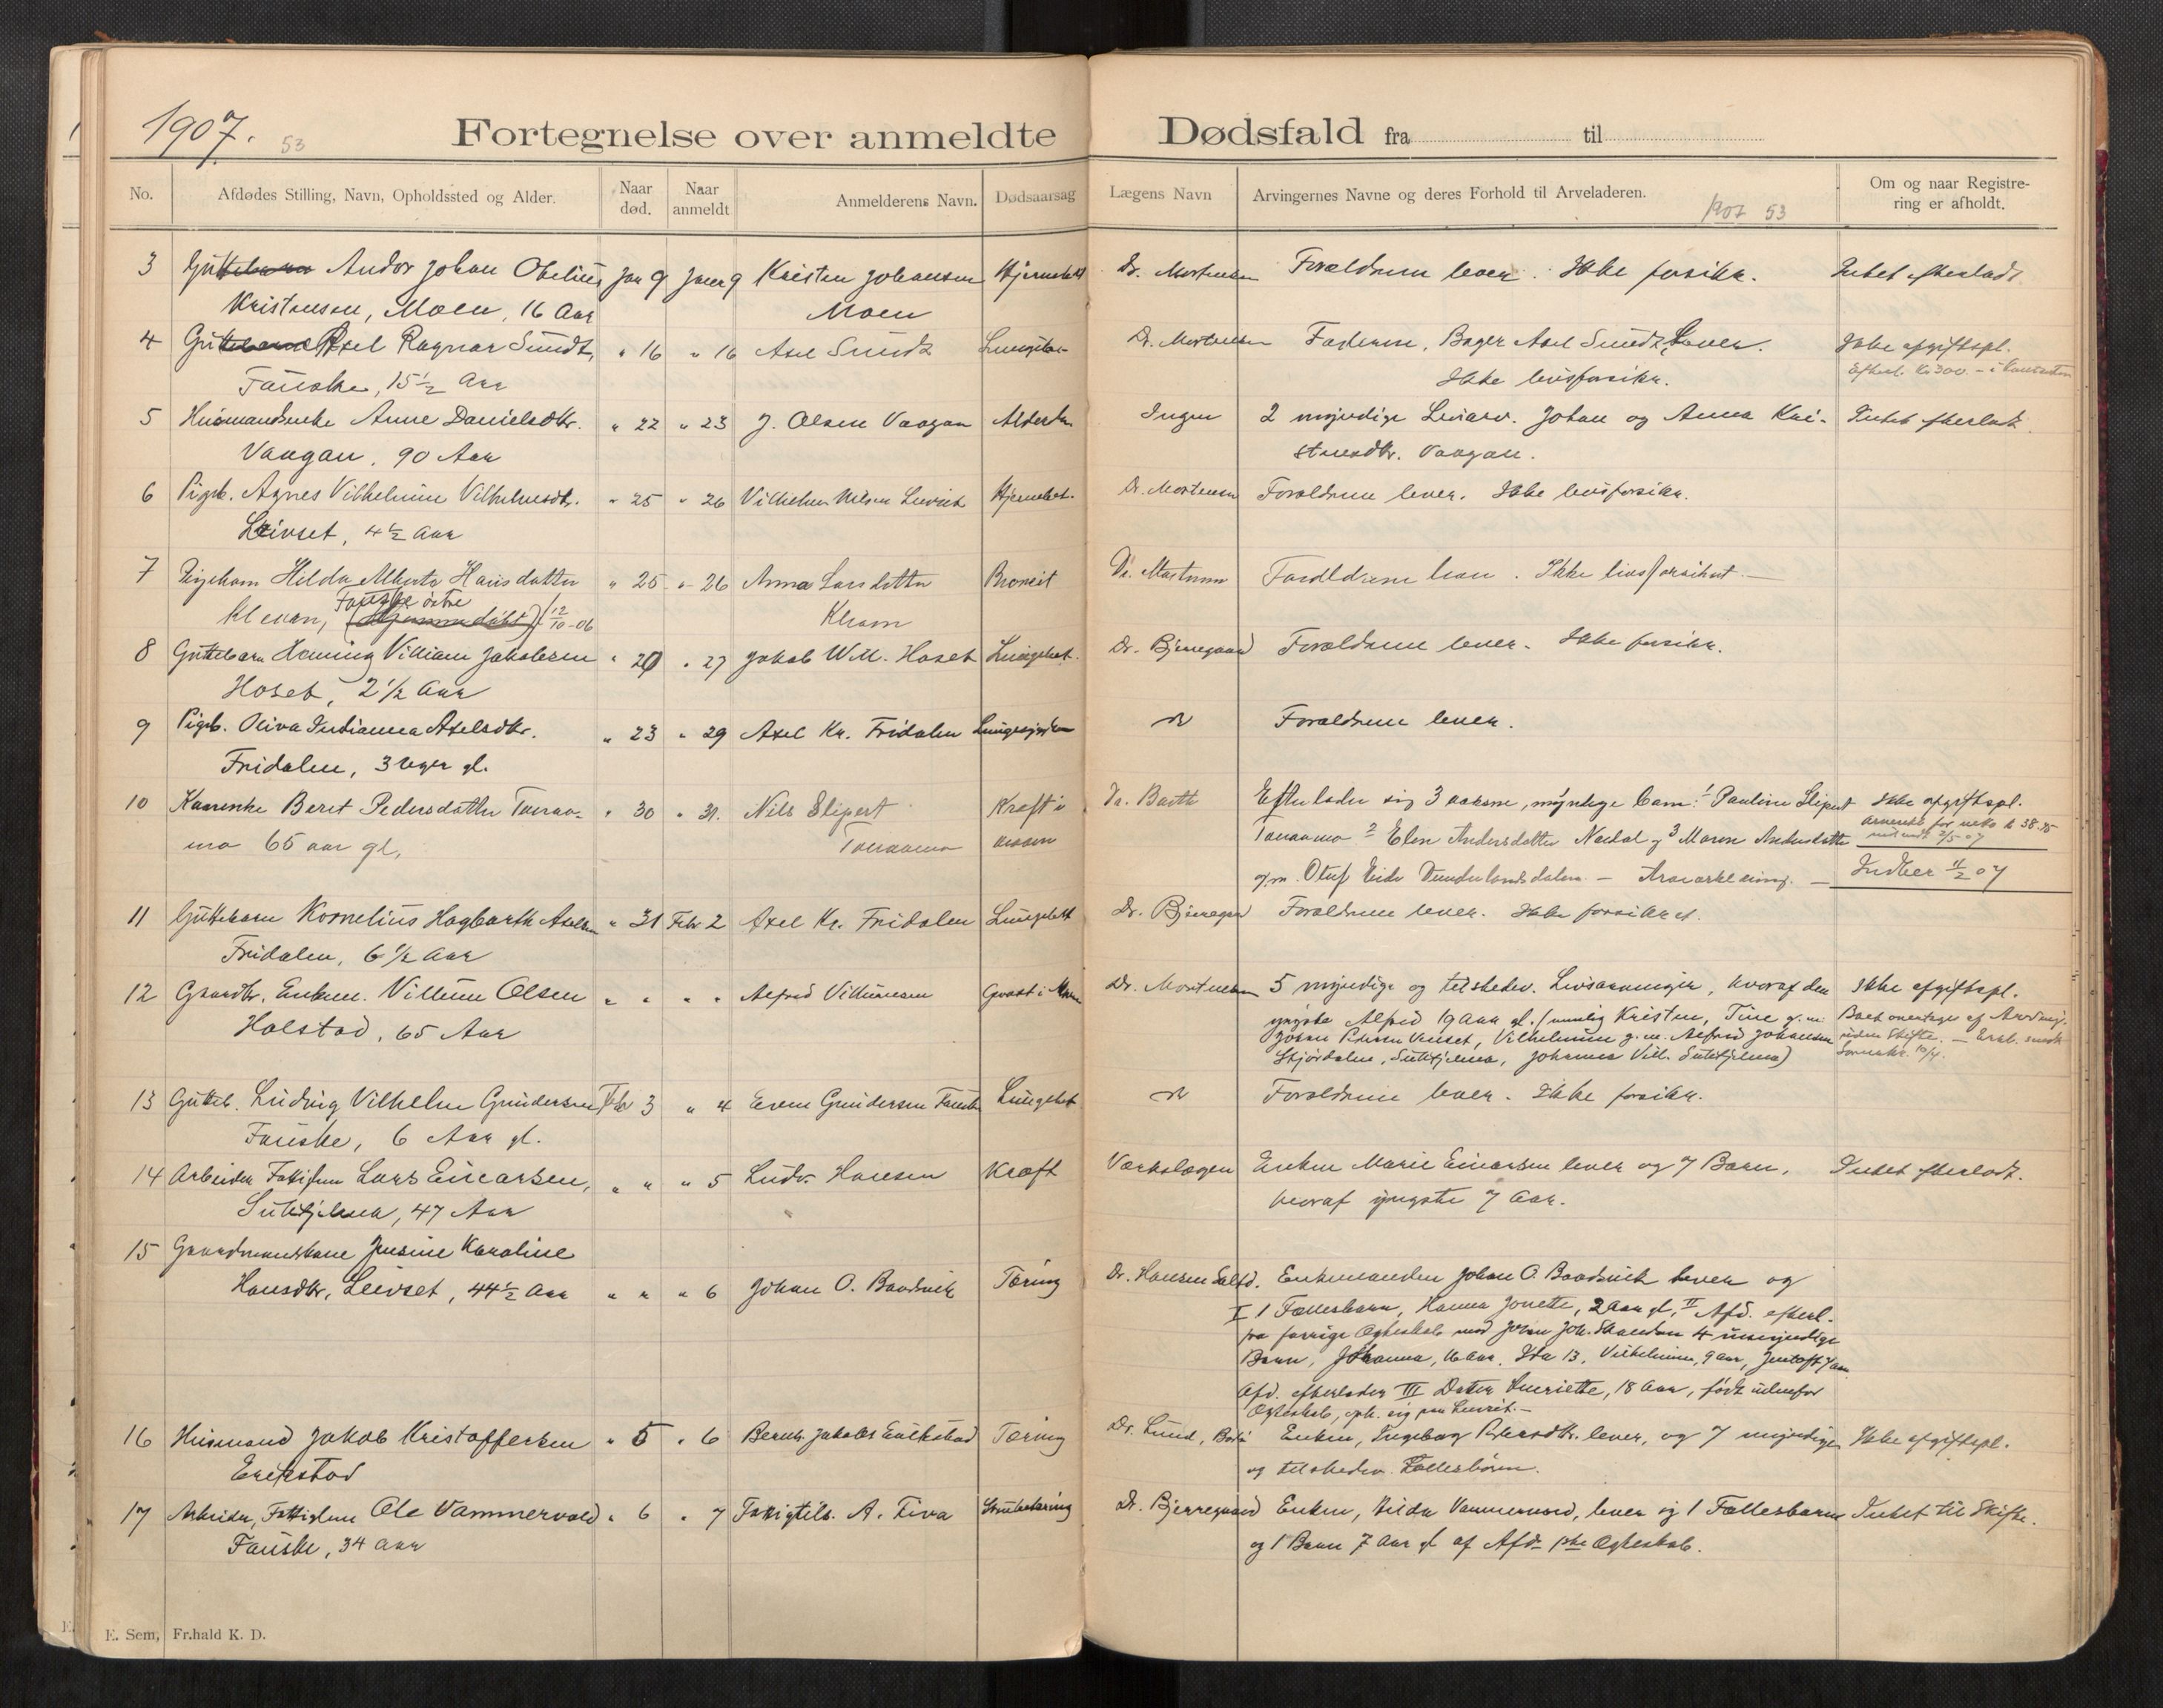 1907.
53
Fortegnelse over anmeldte
Dødsfald fra til
No.
Afdødes Stilling, Navn, Opholdssted og Alder.
Naar død.
Naar anmeldt
Anmelderens Navn.
Dødsaarsag
Lægens Navn
Arvingernes Navne og deres Forhold til Arveladeren.
1907 53
Om og naar Registre-
ring er afholdt.
3 Andor Johan Obelius Jan 9 Janr 9 Kristen Johansen Dr. Mortensen Forældrene lever. Ikke forsikr. Intet efterladt.
Kristensen, Moen, 16 Aar Moen
4 Axel Ragnar Sundt, " 16 " 16 Axel Sundt Dr. Mortensen Faderen, Bager Axel Sundt, lever. Ikke afgiftspl.
Fauske, 15½ Aar Ikke livsforsikr.
5 Husmandsenke Anne Danielsdtr. " 22 " 23 J. Olsen Vaagan Ingen 2 myndige Livsarv. Johan og Anna Kri- Intet efterladt
Vaagan, 90 Aar stensdtr. Vaagan.
6 Pigeb. Agnes Vilhelmine Vilhelmsdtr. " 25 " 26 Vilhelm Nilsen Leivset Hjernebet. Dr. Mortensen Forældrene lever. Ikke livsforsikr.
Leivset, 4½ Aar
7 Pigebarn Hilda Alberta Hansdatter " 25 " 26 Anna Larsdatter Bronkit Dr. Mortensen Forældrene lever. Ikke livsforsikret. —
Klevan, Fauske østre 12/10-06 Klevan
8 Guttebarn Henning Villiam Jakobsen " 20 " 27 Jakob W. M. Hoset Lungebet. Dr. Bjerregaard Forældrene lever. Ikke forsikr.
Hoset, 2½ Aar
9 Pigeb. Oliva Axelsdtr. " 23 " 29 Axel Kr. Fridalen Lungesygdom Forældrene lever.
Fridalen, 3 Uger gl.
10 Beret Pedersdatter " 30 " 31. Nils Slipert Kræft i Efterlader sig 3 voksne, myndige barn: 1 Pauline Slipert Ikke afgiftspl.
65 aar gl, 2 Elen Andersdatter Nordal og 3 Maren Andersdatter
g. m. Oluf Eide Dunderlandsdalen — Indber 11/2 07
11 Guttebarn Kornelius Hagbarth Axelsen " 31 Febr 2 Axel Kr. Fridalen Lungebet Dr. Bjerregaard Forældrene lever. Ikke forsikret.
Fridalen, 6½ Aar
12 Gaardbr. Enkem. Villum Olsen " " " " Alfred Villumsen Dr. Mortensen 5 myndige og tilstedev. Livsarvinger, hvoraf den Ikke afgiftspl.
Holstad, 65 Aar yngste Alfred 19 Aar gl. (nemlig Kristen, Tine g. m.
Vilhelmine g. m. Alfred Johansen
Sulitjelma, Johanna Vill. Sulitjelma)
13 Gutteb. Ludvig Vilhelm Gundersen Febr 3 " 4 Even Gundersen Fauske Lungebet Forældrene lever. Ikke forsikr.
Fauske, 6 Aar gl.
14 Arbeider Lars Einarsen, " " " 5 Ludv. Hansen Kræft Værkslægen Enken Marie Einarsen lever og 7 Barn, Intet efterladt.
Sulitjelma, 47 Aar hvoraf yngste 7 Aar.
15 Gaardmandskone Jensine Karoline
Hansdtr, Leivset, 44½ Aar " " " 6 Johan O. Baadsvik Tæring Dr. Hansen Saltd. Enkemanden Johan O. Baadsvik lever og
I 1 Fællesbarn, Hanna Jonette, 2 Aar gl, II Afd. efterl.
fra forrige Ægteskab med 4 umyndige
Barn, Johanna, 16 Aar, Ida 13, Vilhelmine, 9 Aar, 7 Aar
Afd. efterlader III Datter Henriette, 18 Aar, født udenfor
Ægteskab, oph. sig paa Leivset. —
16 Husmand Jakob Kristoffersen " 5 " 6 Bernh. Jakobs. Erikstad Tæring Dr. Lund, Bodø Enken, Ingeborg Pedersdtr. lever, og 7 myndige Ikke afgiftspl.
Erikstad og tilstedev. Fællesbørn.
17 Arbeider, Ole Vammervold " 6 " 7 Fattigtils. A. Tiva Strubetæring Dr. Bjerregaard Enken, Hilda Vammervold, lever og 1 Fællesbarn Intet til Skifte.
Fauske, 34 Aar og 1 Barn 7 Aar gl af Afd. 1ste Ægteskab.
E. Sem, Fr.hald K. D.